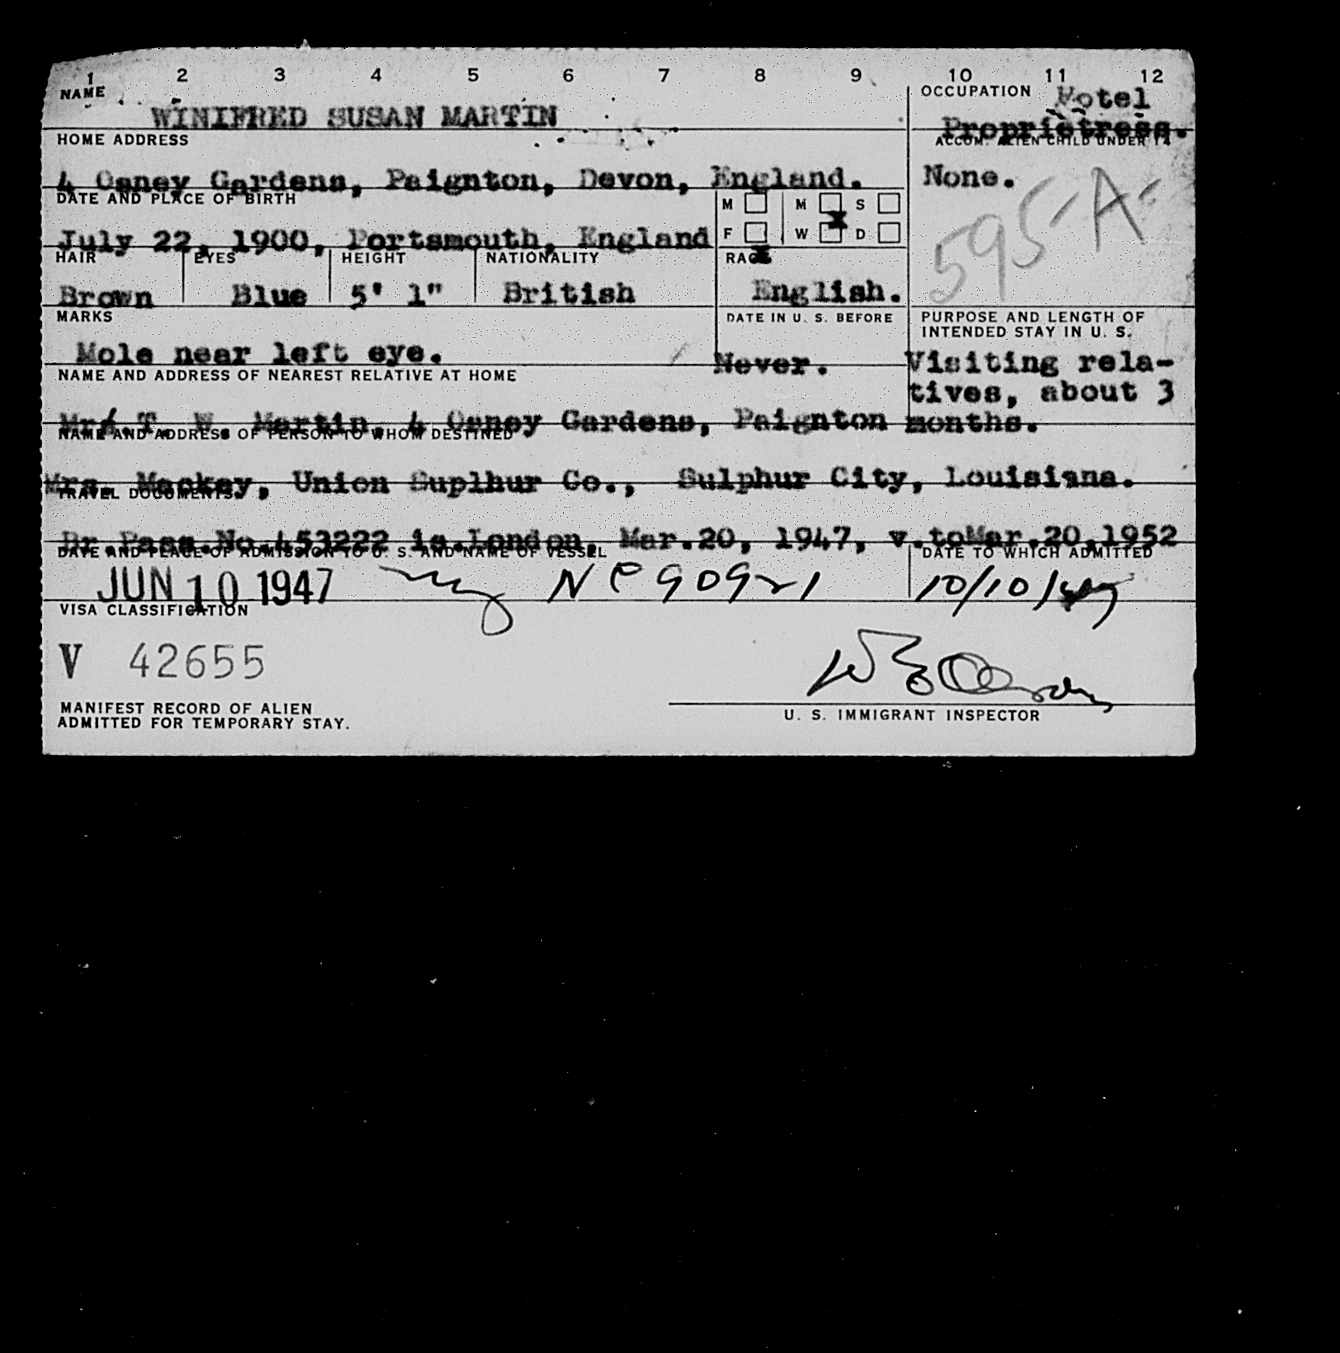 1 2 3 4 5 6 7 8 9 10 11 12
NAME
WINIFRED SUSAN MARTIN
OCCUPATION Hotel
Proprietress.
HOME ADDRESS
4 Osney Gardens, Paignton, Devon, England.
ACCOM. ALIEN CHILD UNDER 14
None.
595-A-
DATE AND PLACE OF BIRTH
July 22, 1900, Portsmouth, England
M M S
F W D
X
X
HAIR EYES HEIGHT NATIONALITY RACE
Brown Blue 5' 1" British English.
MARKS
Mole near left eye.
DATE IN U. S. BEFORE
Never.
PURPOSE AND LENGTH OF
INTENDED STAY IN U. S.
Visiting rela-
tives, about 3
months.
NAME AND ADDRESS OF NEAREST RELATIVE AT HOME
Mr. T. W. Martin, 4 Osney Gardens, Paignton
NAME AND ADDRESS OF PERSON TO WHOM DESTINED
Mrs. Mackay, Union Suplhur Co., Sulphur City, Louisiana.
TRAVEL DOCUMENTS
Br Pass.No.453222 is.London, Mar.20, 1947, v.toMar.20,1952
DATE AND PLACE OF ADMISSION TO U. S. AND NAME OF VESSEL
JUN 10 1947 NY NC90921
DATE TO WHICH ADMITTED
10/10/47
VISA CLASSIFICATION
V 42655
MANIFEST RECORD OF ALIEN
ADMITTED FOR TEMPORARY STAY.
U. S. IMMIGRANT INSPECTOR